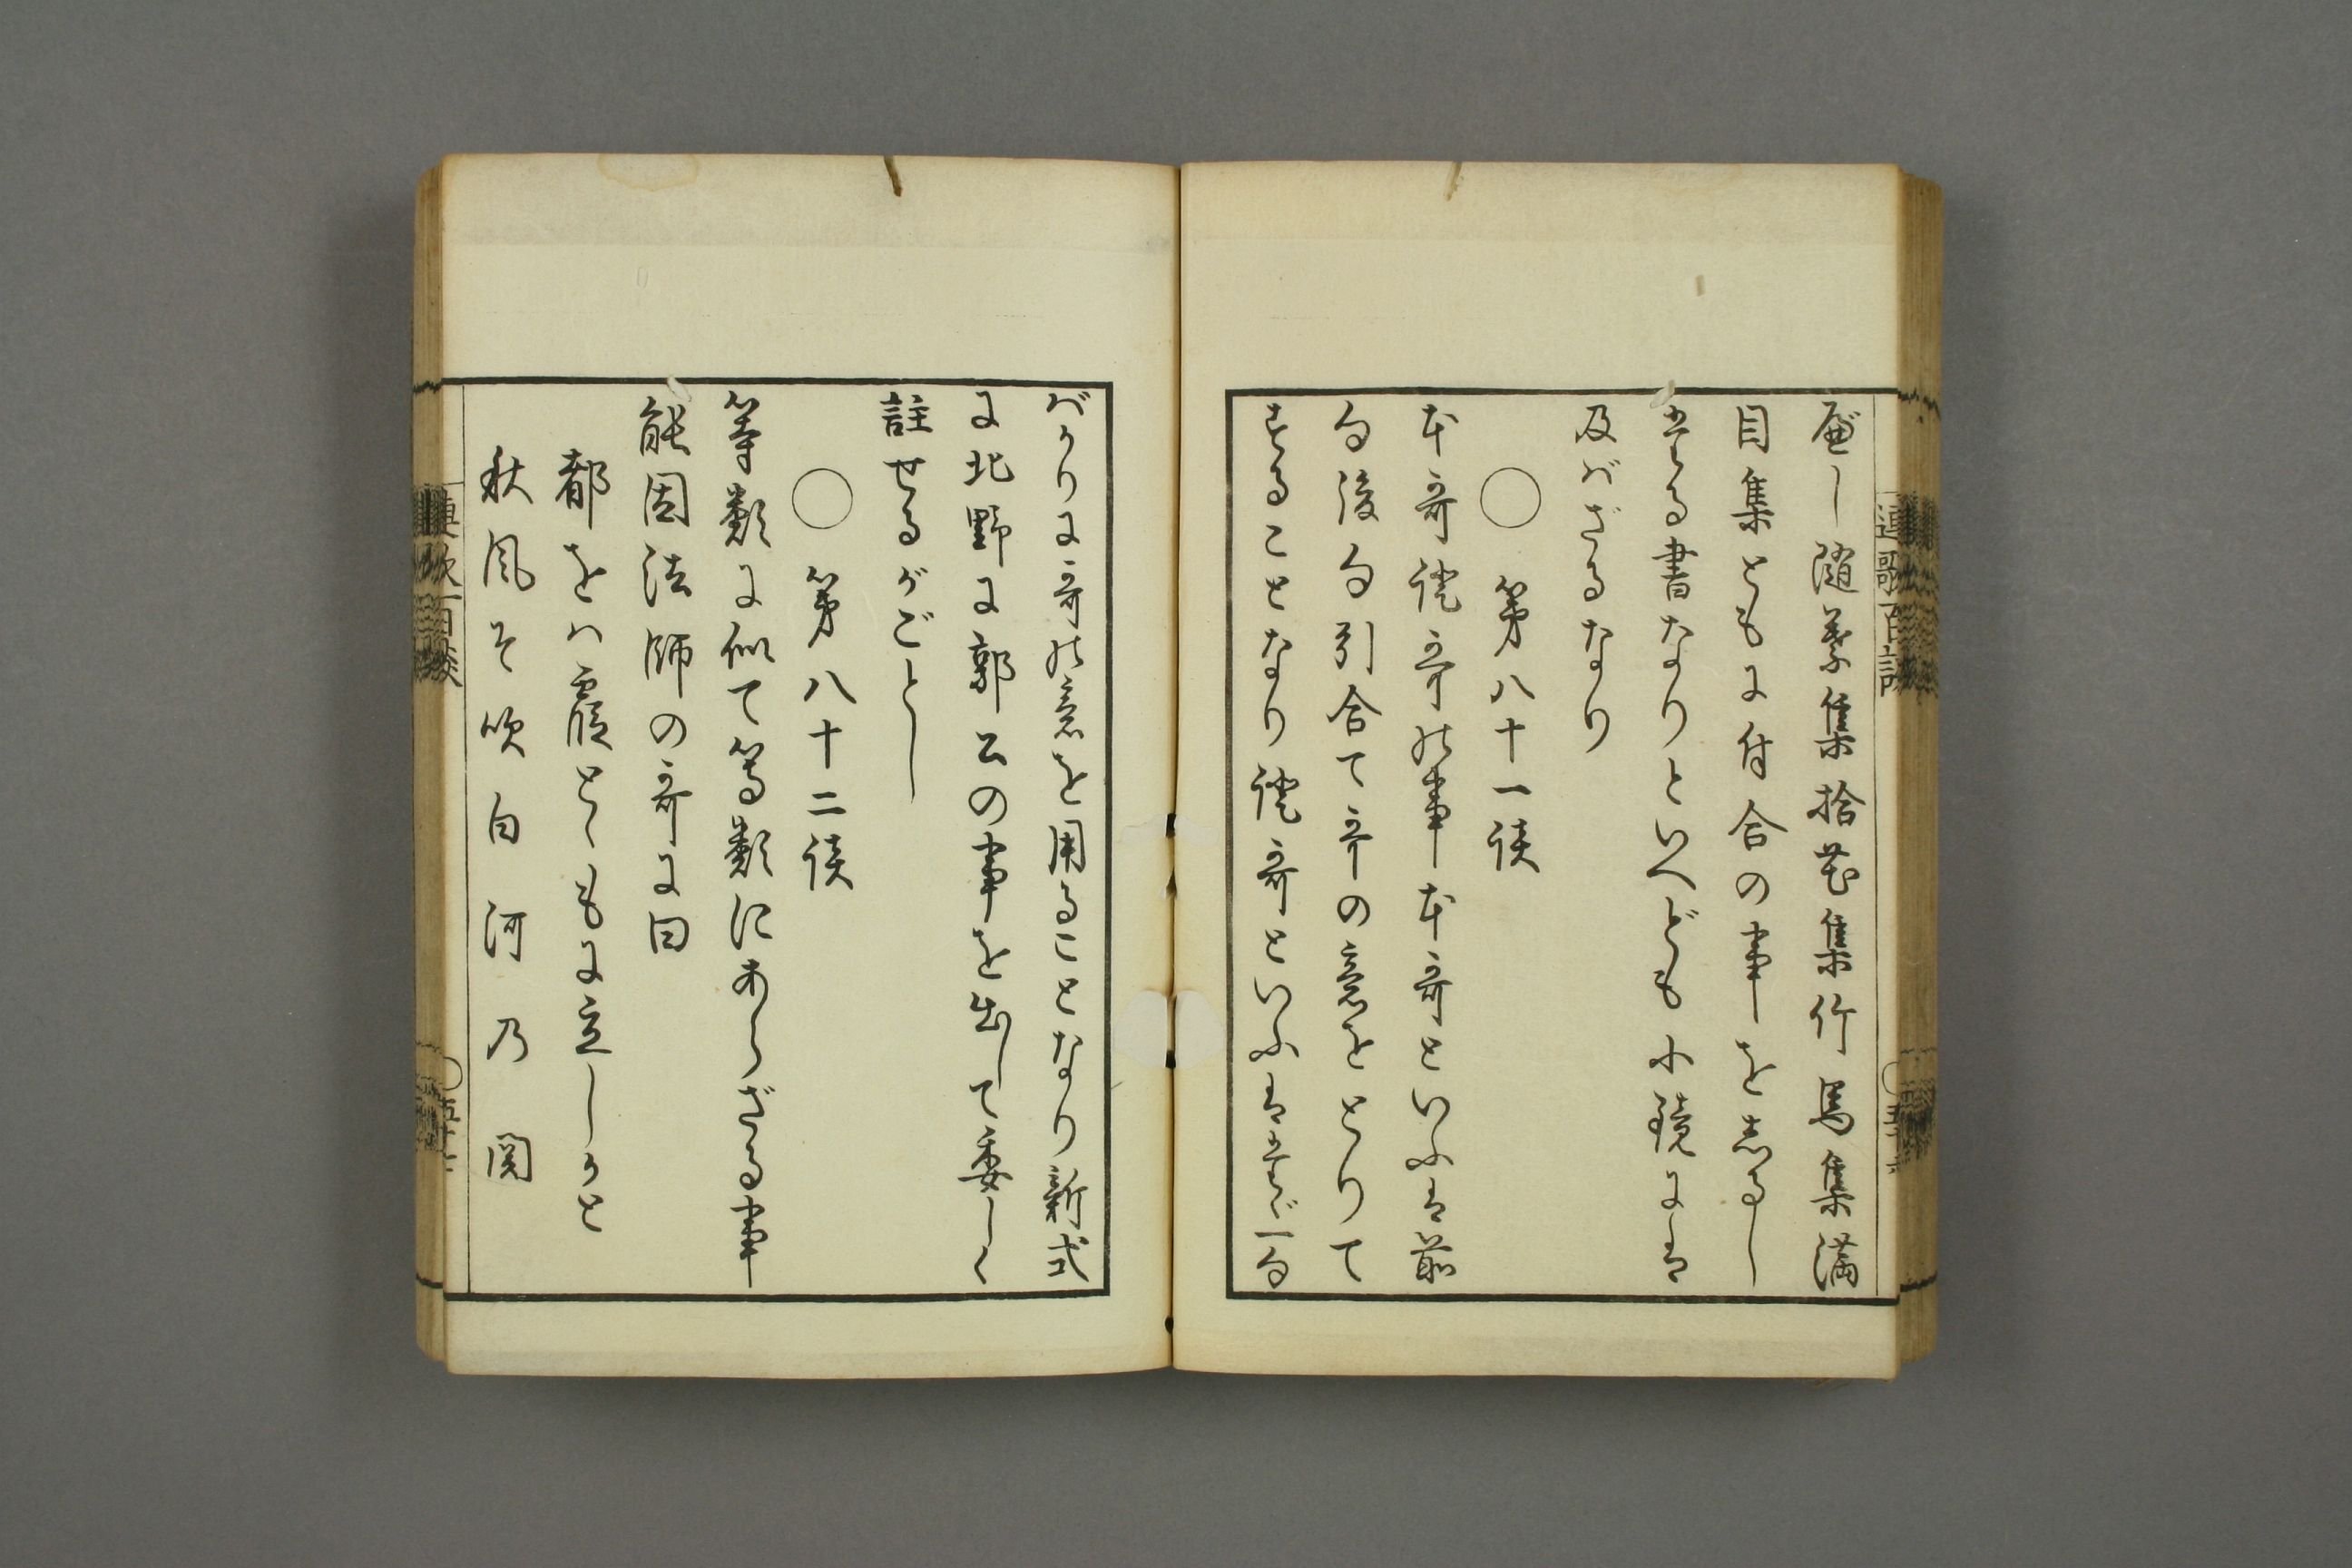 べし随葉集拾花集竹馬集満
目集ともに付合の事を志るし
たる書なりといへども小鏡には
及ばざるなり
○　第八十一談
本哥証哥の事本哥といふは前
句後句引合て哥の意をとりて
することなり証哥といふはたゞ一句
ばかりに哥の意を用ることなり新式
に北野に郭公の事を出して委しく
註せるがごとし
○　第八十二談
等類に似て等類にあらざる事
能因法師の哥に曰
都をハ霞とゝもに立しかと
秋風そ吹白河乃関